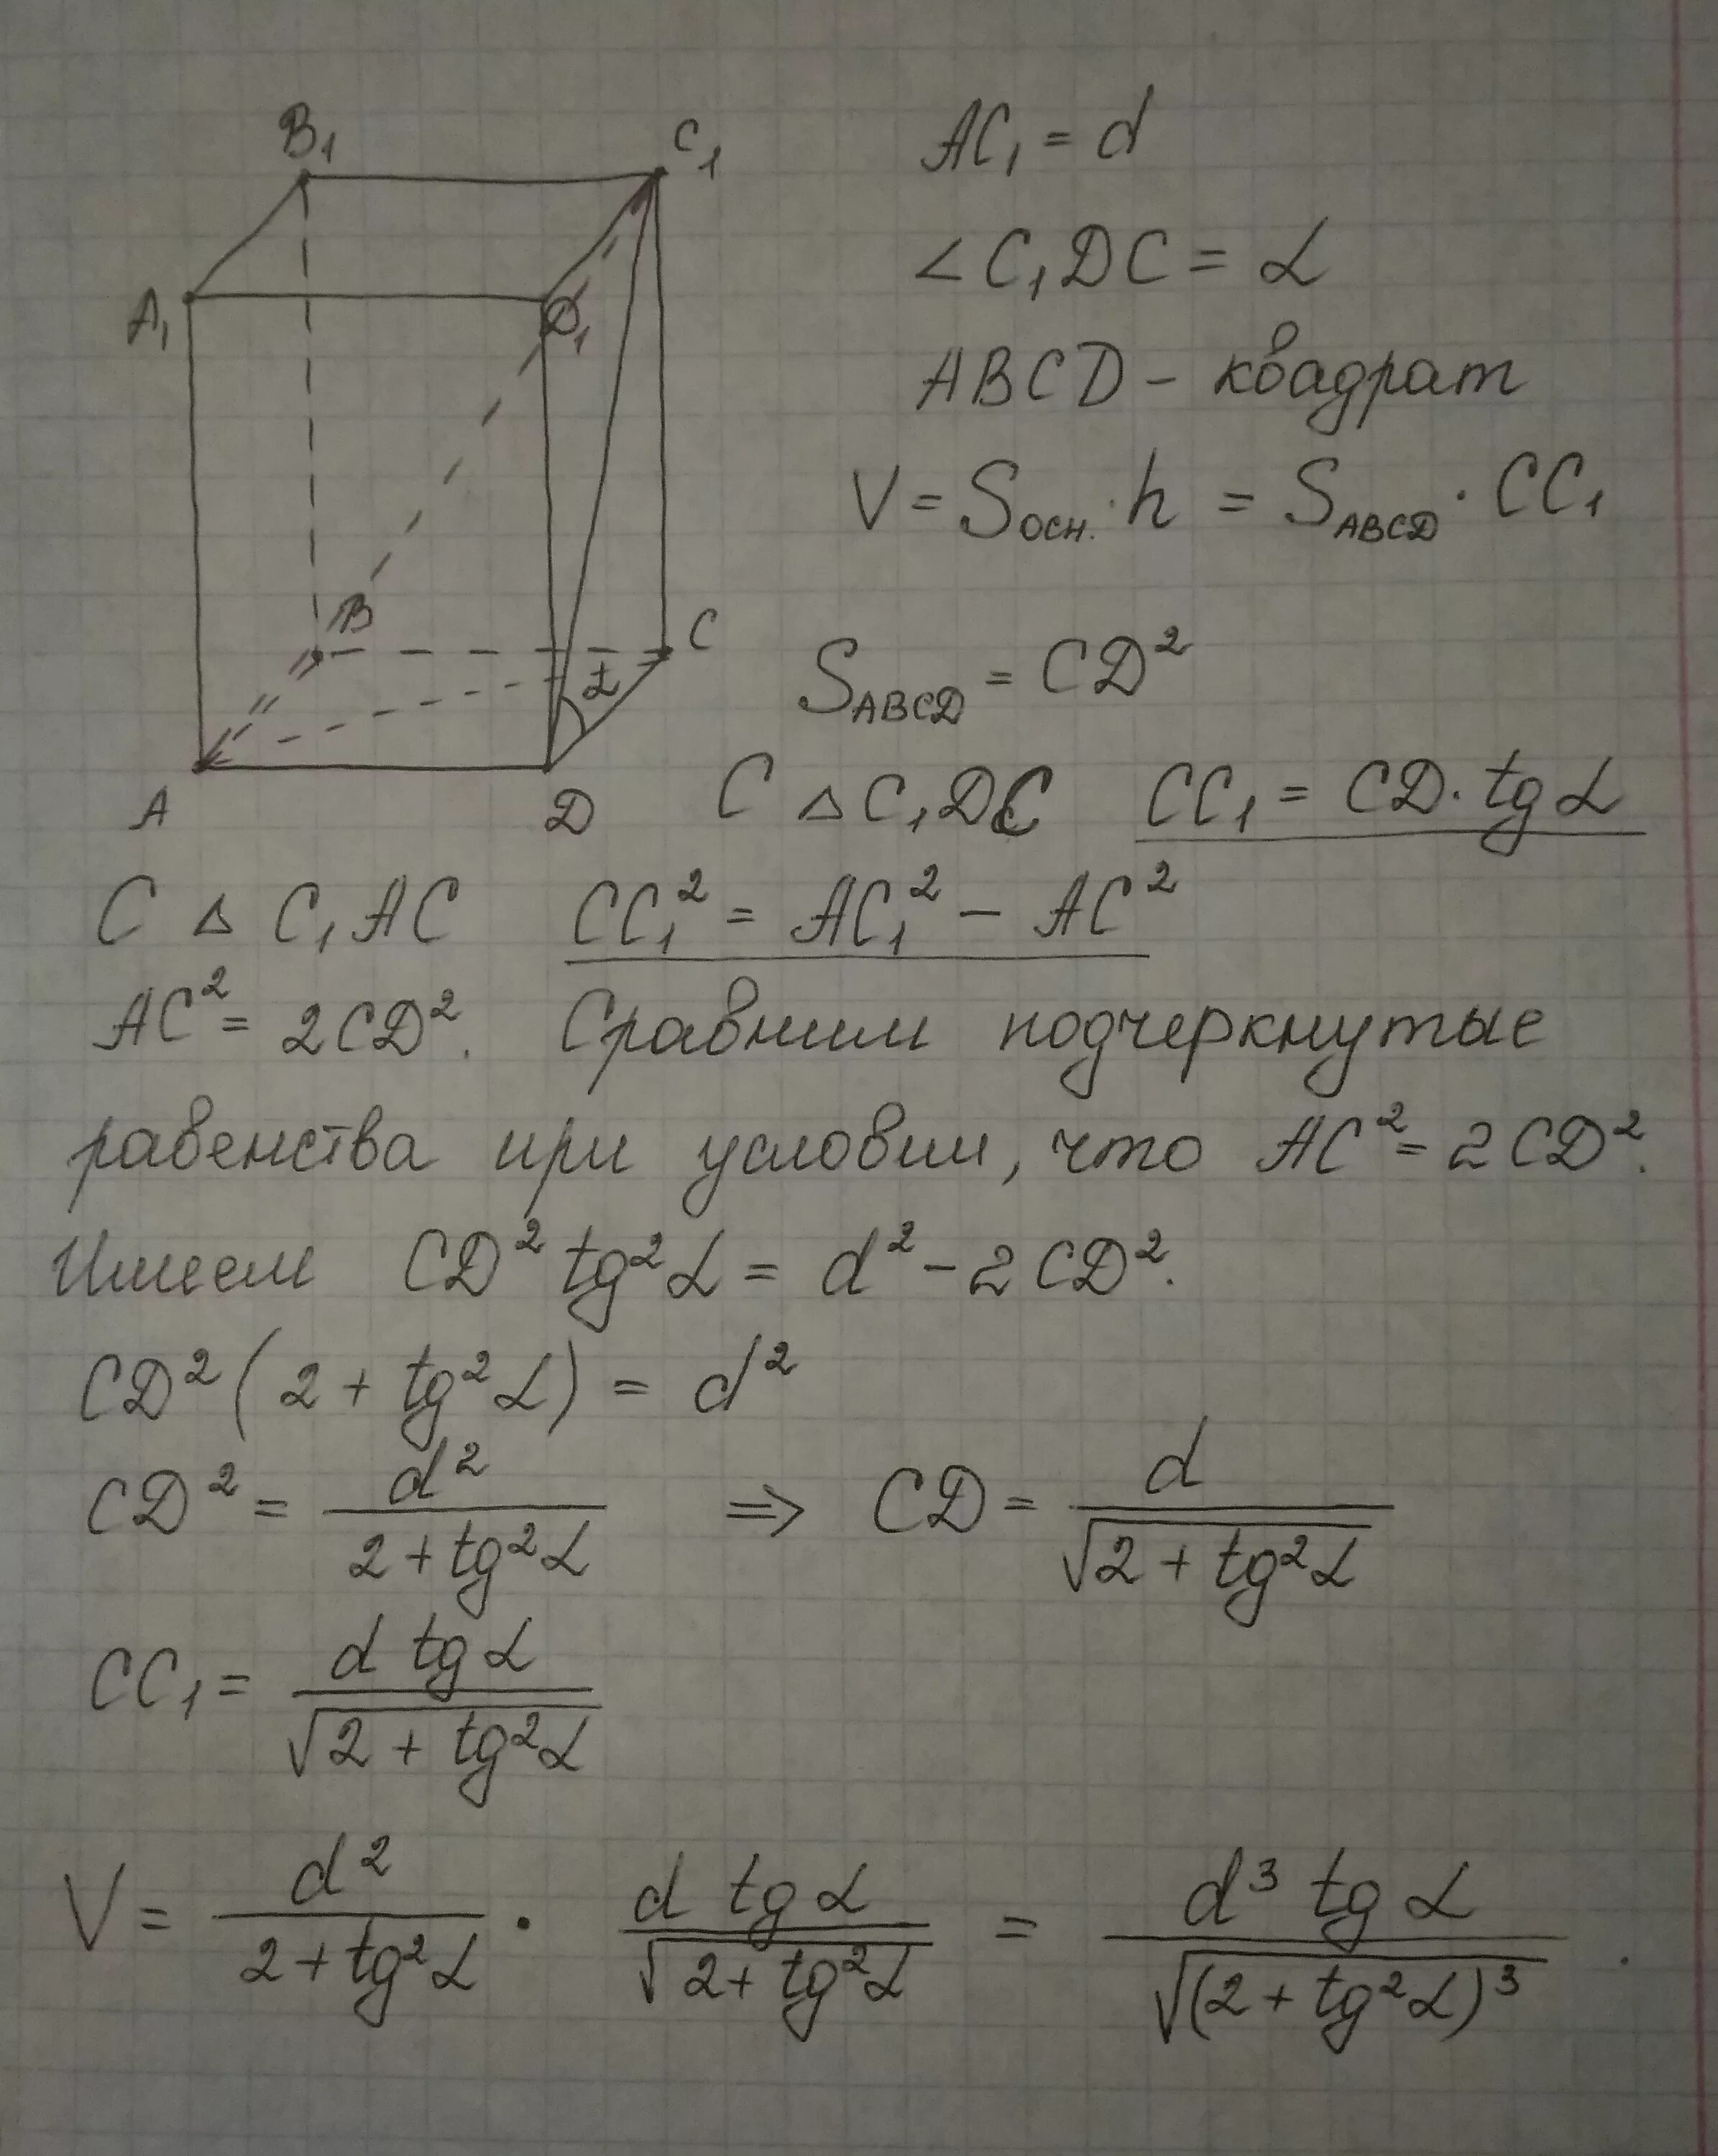 B₁
C₁
A₁
D₁
B
C
α
A
D
AC₁ = d
∠C₁DC = α
ABCD – квадрат
V = Sосн. · h = S_ABCD · CC₁
S_ABCD = CD²
С △C₁DC CC₁ = CD · tg α
С △ C₁AC CC₁² = AC₁² – AC²
AC² = 2CD². Сравним подчеркнутые
равенства при условии, что AC² = 2CD².
Имеем CD² tg²α = d² – 2CD².
CD² (2 + tg²α) = d²
CD² = d² / (2 + tg²α) ⇒ CD = d / √(2 + tg²α)
CC₁ = d tg α / √(2 + tg²α)
V = d² / (2 + tg²α) · d tg α / √(2 + tg²α) = d³ tg α / √((2 + tg²α)³) .